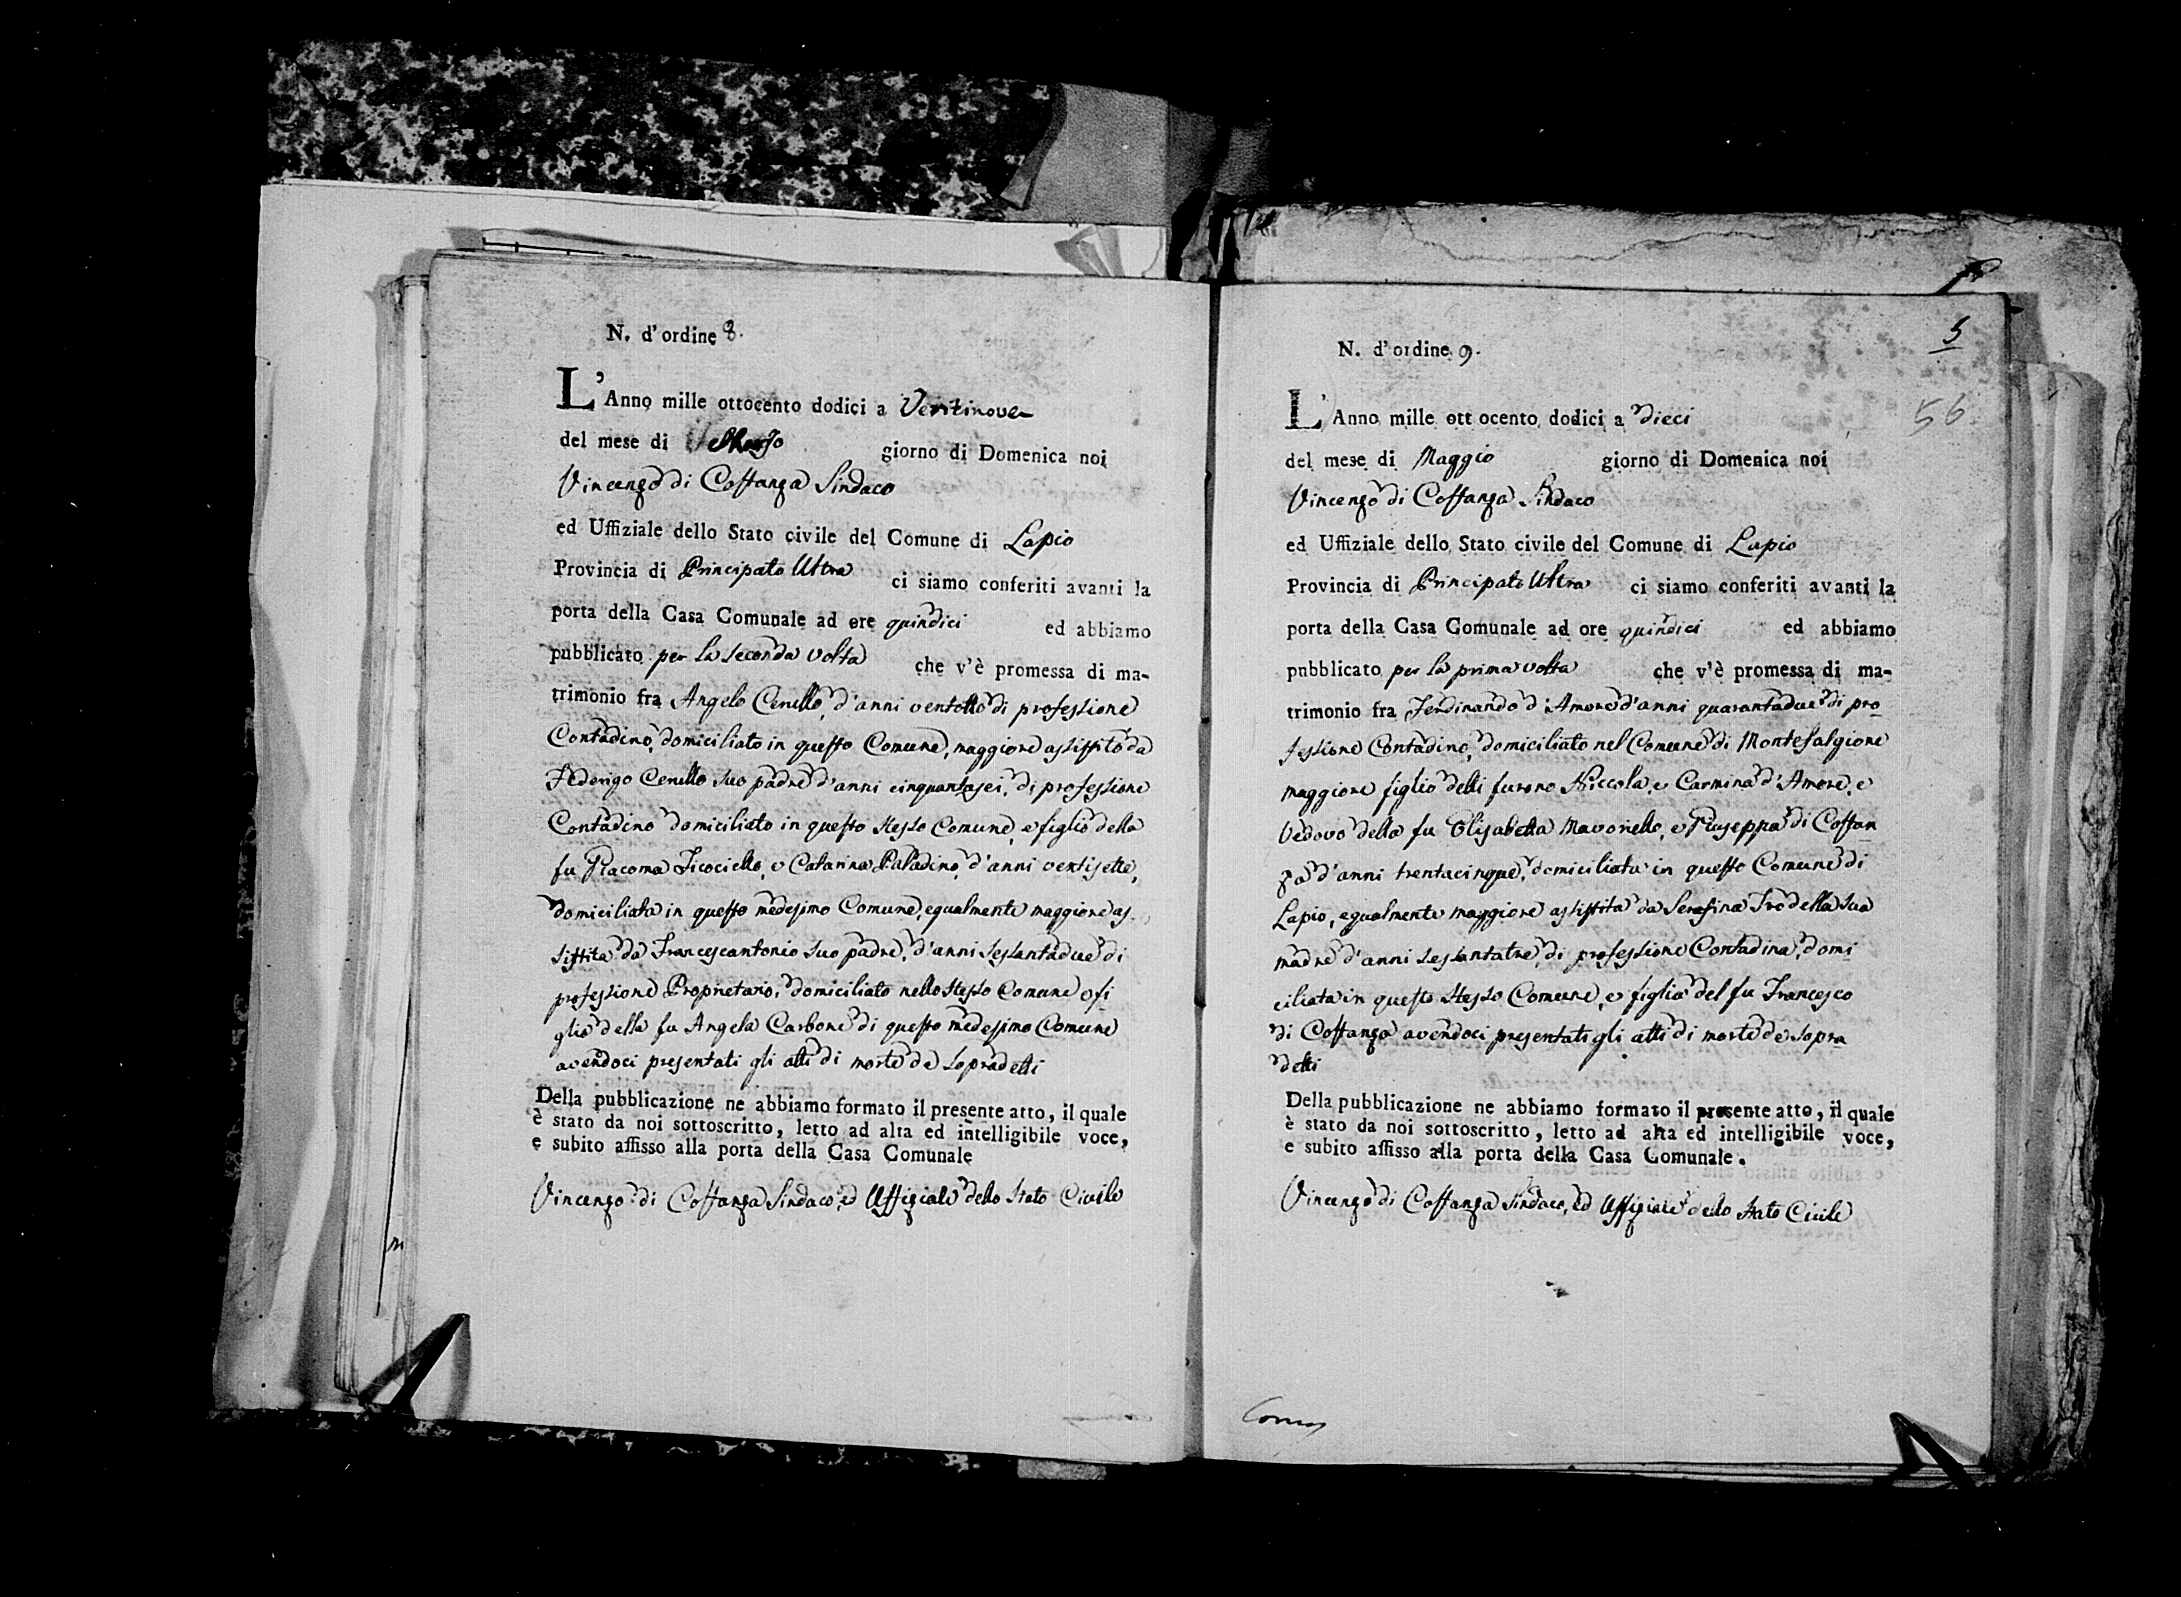 N. d'ordine 8.
L'Anno mille ottocento dodici a Ventinove
del mese di Marzo giorno di Domenica noi
Vincenzo di Costanza Sindaco
ed Uffiziale dello Stato civile del Comune di Lapio
Provincia di Principato Ultra ci siamo conferiti avanti la
porta della Casa Comunale ad ore quindici ed abbiamo
pubblicato per la seconda volta che v'è promessa di ma-
trimonio fra Angelo Cerullo, d'anni ventotto di professione
Contadino, domiciliato in questo Comune, maggiore assistito da
Federigo Cerullo suo padre d'anni cinquantasei, di professione
Contadino domiciliato in questo stesso Comune, e figlio della
fu Giacoma, e Catarina Paladino, d'anni ventisette,
domiciliata in questo medesimo Comune, egualmente maggiore as-
sistita da Francescantonio suo padre, d'anni sessantadue di
professione Proprietario, domiciliato nello stesso Comune e fi
glia della fu Angela Carbone di questo medesimo Comune
avendoci presentati gli atti di morte de sopradetti
Della pubblicazione ne abbiamo formato il presente atto, il quale
è stato da noi sottoscritto, letto ad alta ed intelligibile voce,
e subito affisso alla porta della Casa Comunale
Vincenzo di Costanza Sindaco, ed Uffiziale dello Stato Civile
5
56
N. d'ordine 9.
L'Anno mille ott ocento dodici a dieci
del mese di Maggio giorno di Domenica noi
Vincenzo di Costanza Sindaco
ed Uffiziale dello Stato civile del Comune di Lapio
Provincia di Principato Ultra ci siamo conferiti avanti la
porta della Casa Comunale ad ore quindici ed abbiamo
pubblicato per la prima volta che v'è promessa di ma-
trimonio fra Ferdinando d'Amore d'anni quarantadue di pro
fessione Contadino, domiciliato nel Comune di Montefalgione
maggiore figlio delli furono Niccola, e Carmina d'Amore, e
Vedovo della fu Elisabetta Mavoriello, e Giuseppa di Costan
za d'anni trentacinque, domiciliata in questo Comune di
Lapio, egualmente maggiore assistita da Serafina Trodella sua
madre d'anni sessantatre, di professione Contadina, domi
ciliata in questo stesso Comune, e figlia del fu Francesco
di Costanza avendoci presentati gli atti di morte de sopra
detti
Della pubblicazione ne abbiamo formato il presente atto, il quale
è stato da noi sottoscritto, letto ad alta ed intelligibile voce,
e subito affisso alla porta della Casa Comunale.
Vincenzo di Costanza Sindaco, ed Uffiziale dello Stato Civile